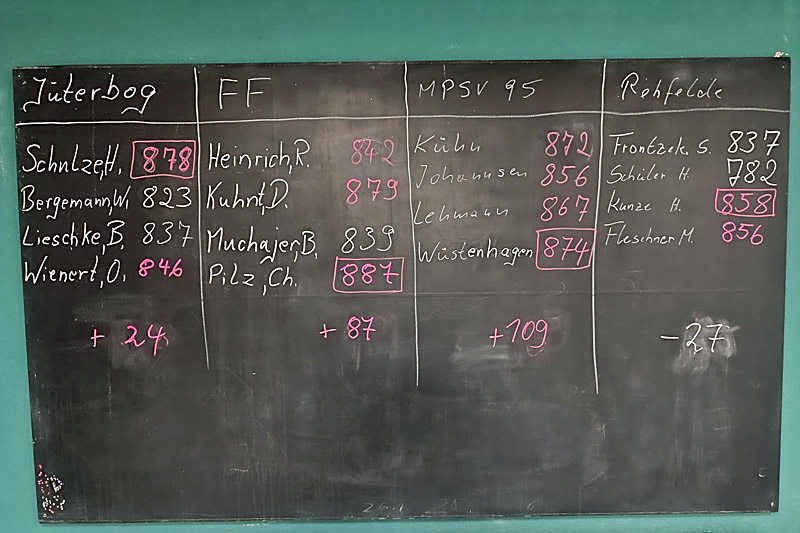 Jüterbog
Schulze, H. 878
Bergemann, W. 823
Lieschke, B. 837
Wienert, O. 846
+ 24
FF
Heinrich, R. 842
Kuhnt, D. 879
Muchajer, B. 839
Pilz, Ch. 887
+ 87
MPSV 95
Kühn 872
Johannsen 856
Lehmann 867
Wüstenhagen 874
+109
Röhfelde
Frontzek. S. 837
Schüler H. 782
Kunze H. 858
Fleschner M. 856
- 27